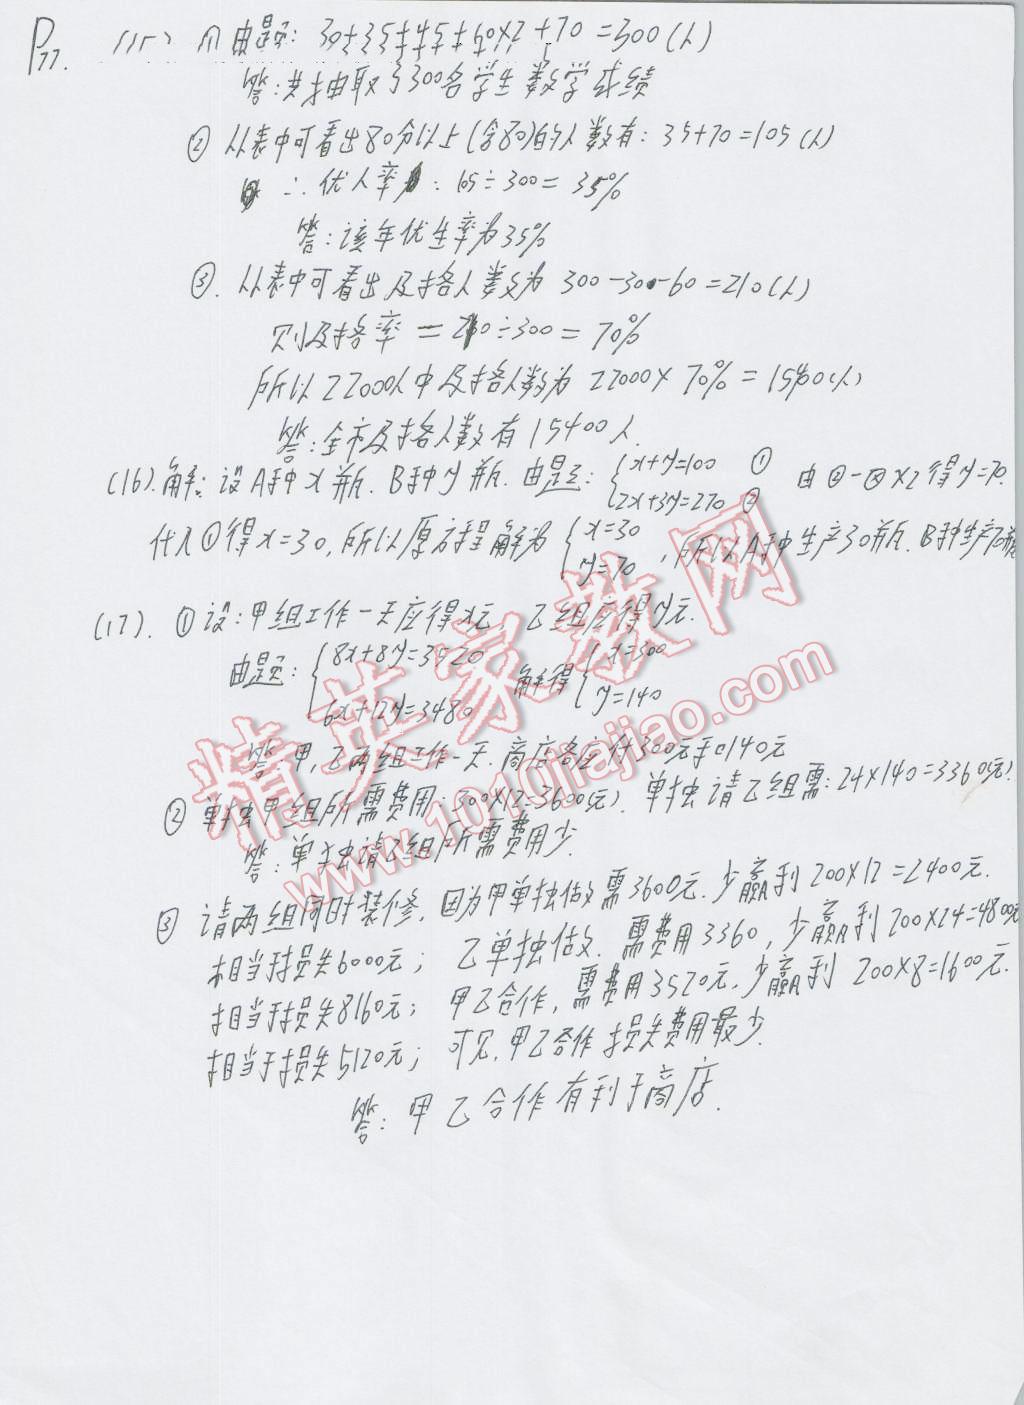 P77. (15) ① 由题: 30+35+45+60×2+70=300(人)
答:共抽取了300名学生数学成绩
② 从表中可看出80分以上(含80)的人数有: 35+70=105(人)
∴优人率: 105÷300=35%
答:该年优生率为35%
③. 从表中可看出及格人数为 300-30-60=210(人)
则及格率=210÷300=70%
所以22000人中及格人数为 22000×70%=15400(人)
答:全市及格人数有15400人.
(16).解:设A种x瓶.B种y瓶.由题:{x+y=100 ① 2x+3y=270 ② 由②-①×2得y=70.
代入①得x=30,所以原方程解为{x=30 y=70,所以A种生产30瓶.B种生产70瓶
(17). ①设:甲组工作一天应得x元,乙组应得y元.
由题:{8x+8y=3520 6x+12y=3480 解得{x=300 y=140
答:甲,乙两组工作一天.商店各应付300元和140元
② 单独甲组所需费用:300×12=3600(元). 单独请乙组需:24×140=3360(元).
答:单独请乙组所需费用少.
③ 请两组同时装修.因为甲单独做需3600元.少赢利200×12=2400元.
相当于损失6000元; 乙单独做.需费用3360,少赢利200×24=4800元
相当于损失8160元; 甲乙合作,需费用3520元,少赢利 200×8=1600元.
相当于损失5120元; 可见,甲乙合作损失费用最少.
答:甲乙合作有利于商店.
精英家教网
www.1010jiajiao.com